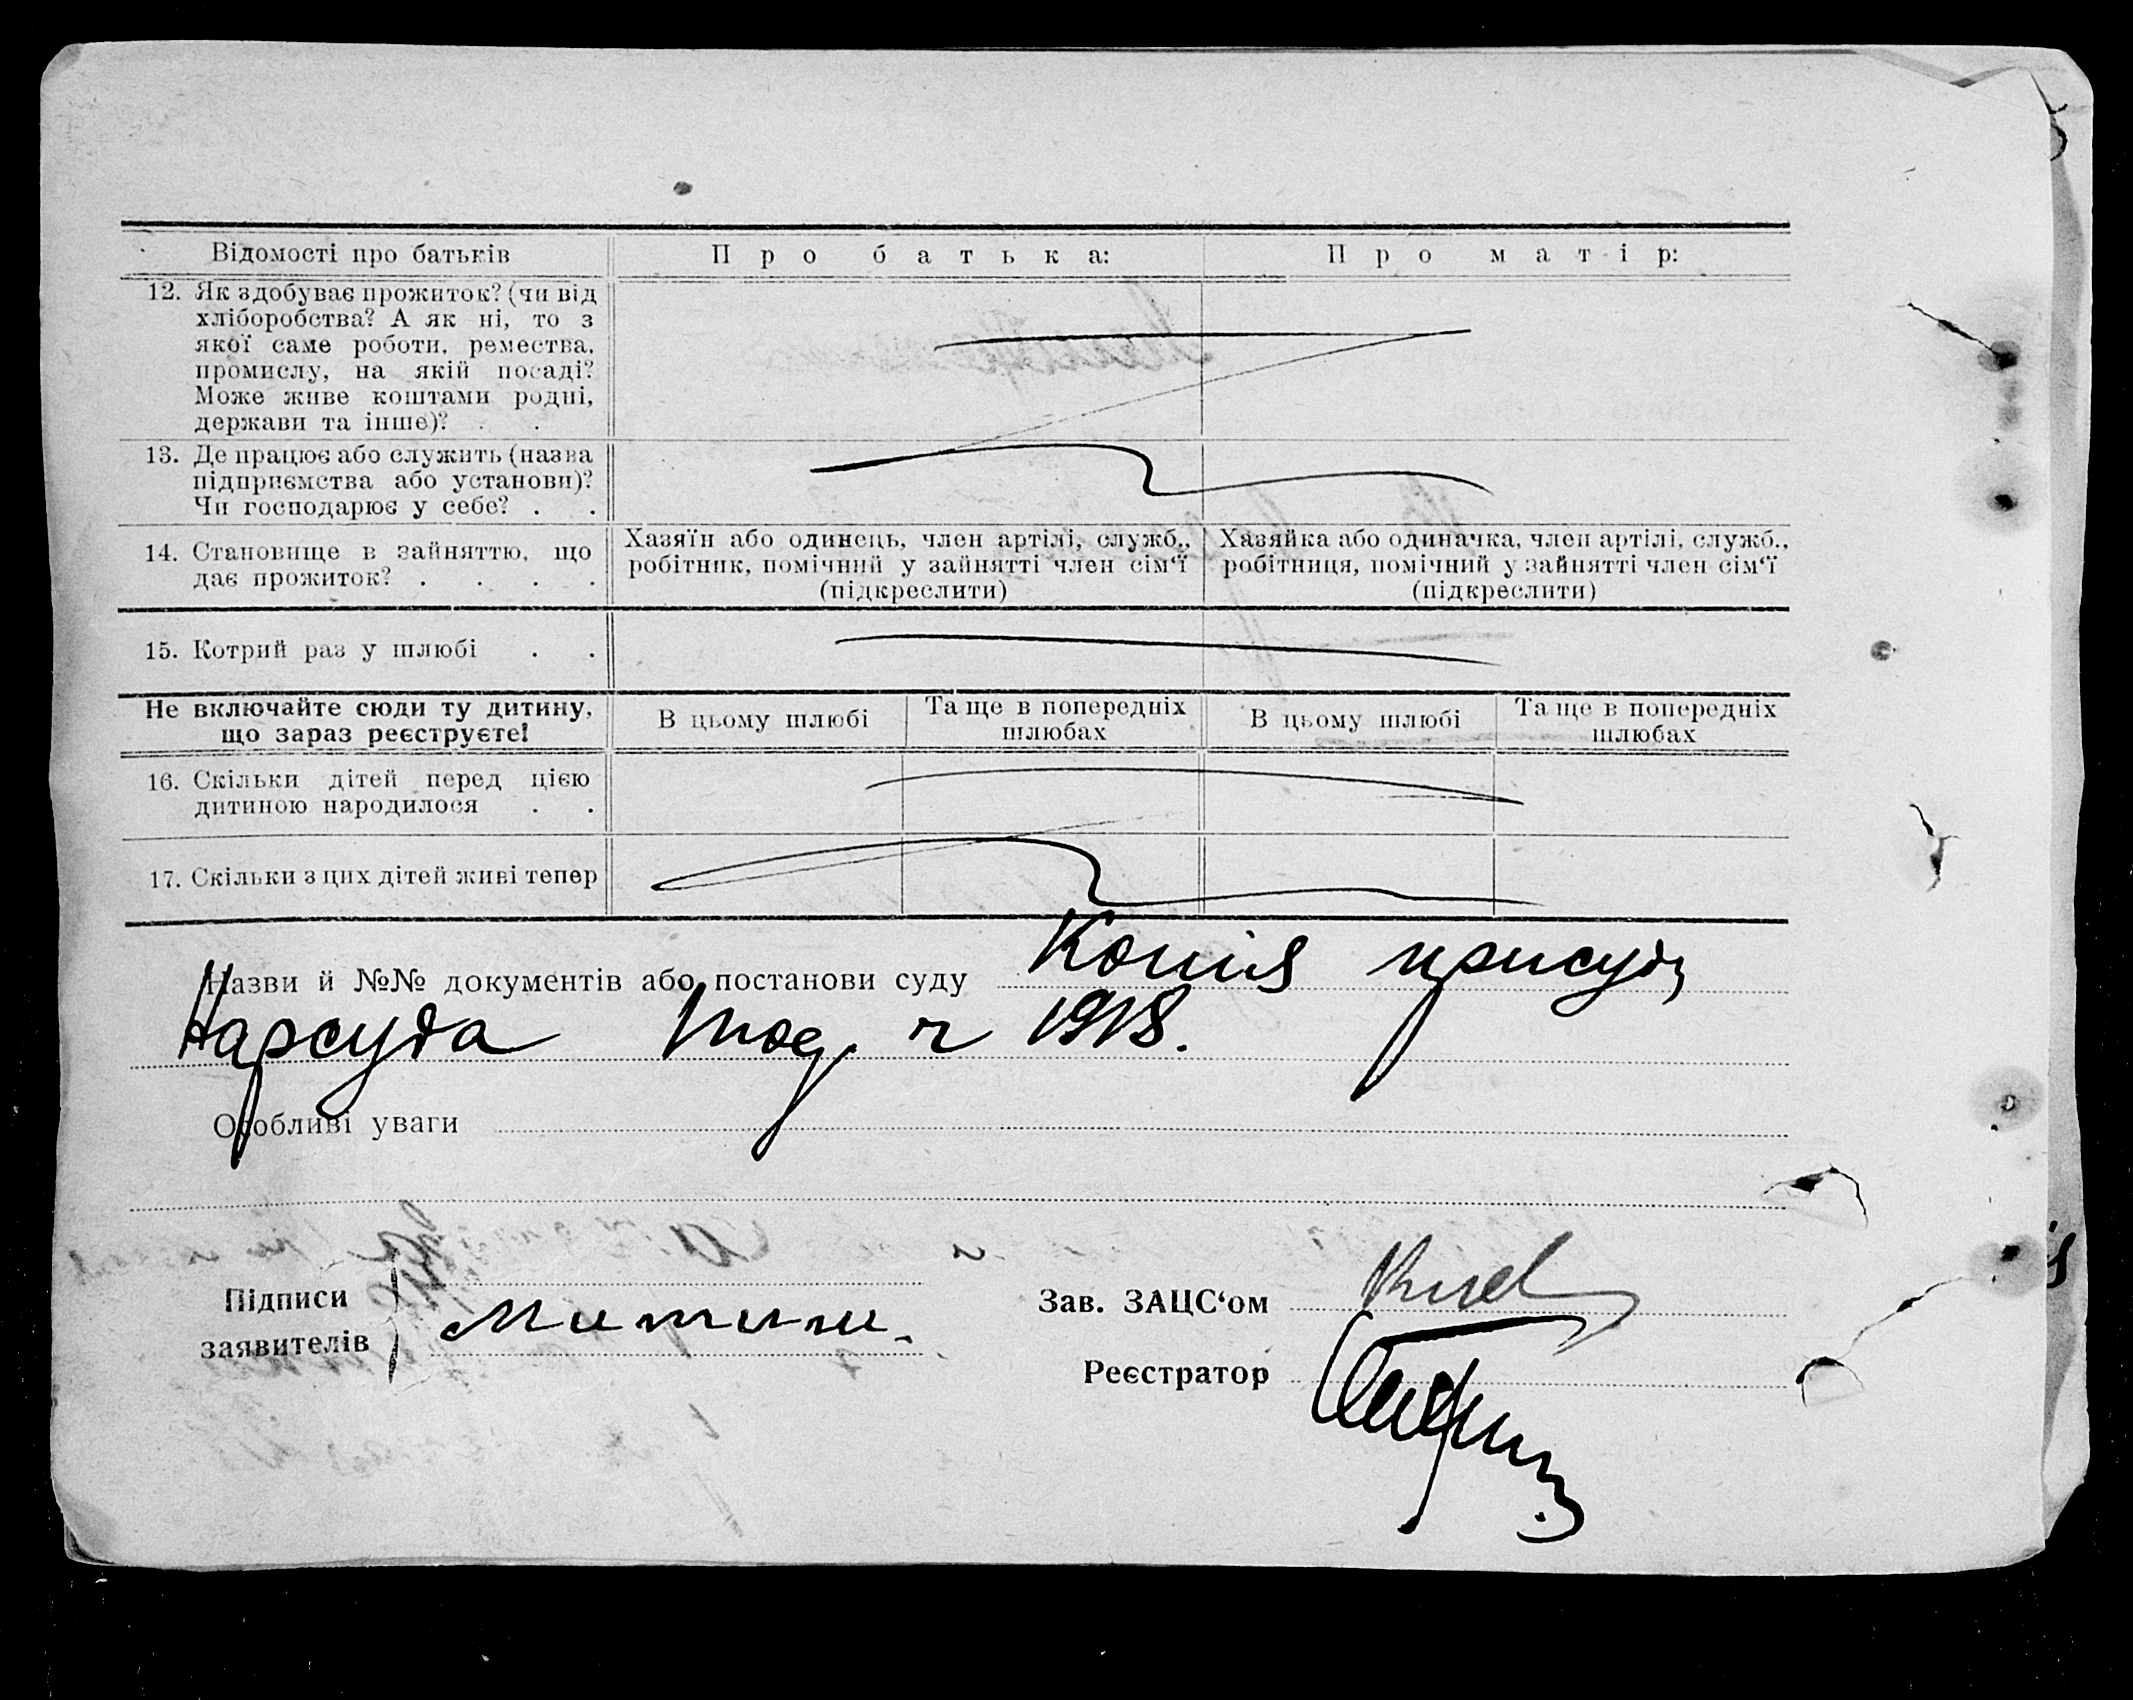 Відомості про батьків
Про батька:
Про матір:
12. Як здобуває прожиток? (чи від
хліборобства? А як ні, то з
якої саме роботи, ремества,
промислу, на якій посаді?
Може живе коштами родні,
держави та інше)? . .
13. Де працює або служить (назва
підприємства або установи)?
Чи господарює у себе? . .
14. Становище в зайняттю, що
дає прожиток? . . . .
Хазяїн або одинець, член артілі, служб.,
робітник, помічний у зайнятті член сім‘ї
(підкреслити)
Хазяйка або одиначка, член артілі, служб.,
робітниця, помічний у зайнятті член сім‘ї
(підкреслити)
15. Котрий раз у шлюбі . .
Не включайте сюди ту дитину,
що зараз реєструєте!
В цьому шлюбі
Та ще в попередніх
шлюбах
В цьому шлюбі
Та ще в попередніх
шлюбах
16. Скільки дітей перед цією
дитиною народилося . .
17. Скільки з цих дітей живі тепер
Назви й №№ документів або постанови суду Копія присуду
Нарсуда ч 1918.
Особливі уваги
Підписи
заявителів
Зав. ЗАЦС‘ом
Реєстратор